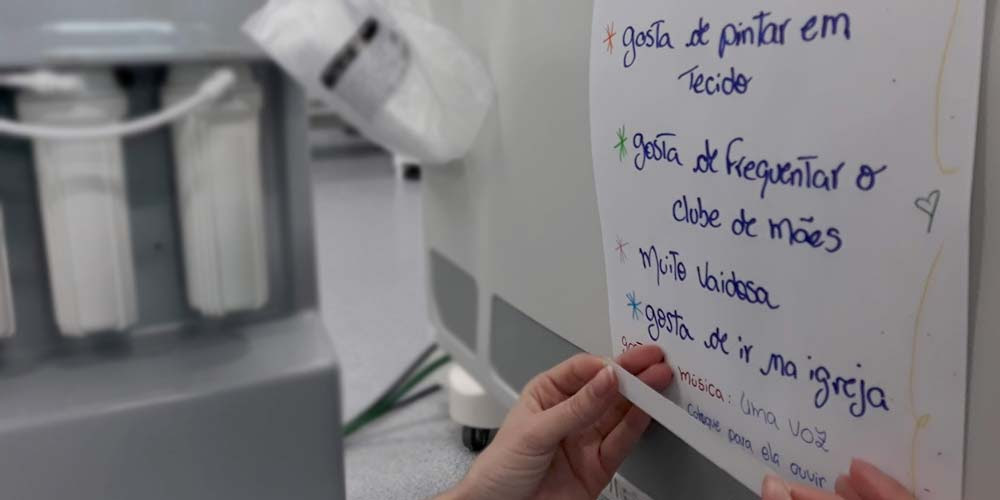 * gosta de pintar em
Tecido
* gosta de frequentar o
clube de mães
* muito vaidosa
* gosta de ir na igreja
música: Uma voz
Coloque para ela ouvir